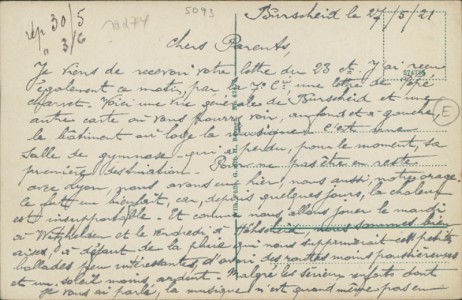 rép 30/5
" 3/6
5093
Burscheid le 27/5/21
Chers Parents,
Je viens de recevoir votre lettre du 23 ct. J'ai reçu
également ce matin, par la 7e Cie, une lettre de Pépé
Charrot. Voici une vue générale de Burscheid et une
autre carte où vous pourrez voir, au fond et à gauche,
le bâtiment où loge la musique. C'est une
salle de gymnase qui a perdu, pour le moment, sa
première destination. Pour ne pas être en reste
avec Dyon, nous avons eu hier, nous aussi, notre orage.
Ce fut un bienfait, car, depuis quelques jours, la chaleur
est insupportable. Et comme nous allons jouer le mardi
à et le vendredi à nous sommes bien
aises, à défaut de la pluie qui nous supprimerait ces petites
ballades peu intéressantes, d'avoir des routes moins poussiéreuses
et un soleil moins ardent. Malgré les sérieux renforts dont
je vous ai parlé, la musique n'est quand même pas en
E